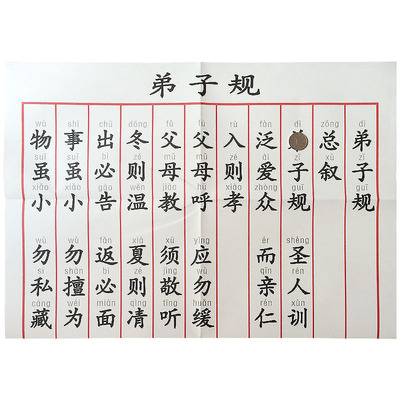 弟子规
dì 弟 zǐ 子 guī 规
zǒng 总 xù 叙
dì zǐ 子 guī 规 shèng 圣 rén 人 xùn 训
fàn 泛 ài 爱 zhòng 众 ér 而 qīn 亲 rén 仁
rù 入 zé 则 xiào 孝
fù 父 mǔ 母 hū 呼 yìng 应 wù 勿 huǎn 缓
fù 父 mǔ 母 jiào 教 xū 须 jìng 敬 tīng 听
dōng 冬 zé 则 wēn 温 xià 夏 zé 则 qìng 凊
chū 出 bì 必 gào 告 fǎn 返 bì 必 miàn 面
shì 事 suī 虽 xiǎo 小 wù 勿 shàn 擅 wéi 为
wù 物 suī 虽 xiǎo 小 wù 勿 sī 私 cáng 藏